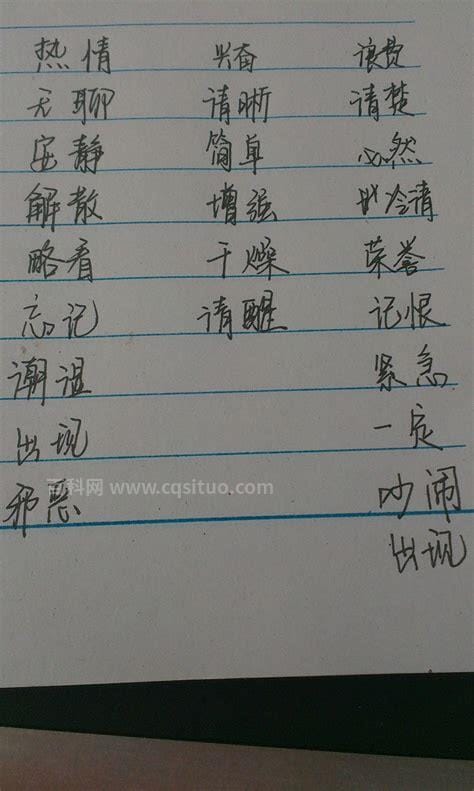 热情 兴奋 浪费
无聊 请晰 请楚
安静 简单 必然
解散 增强 冷请
略看 干燥 荣誉
忘记 请醒 记恨
潮湿 紧急
出现 一定
百科网 www.cqsituo.com
邪恶 吵闹
出现